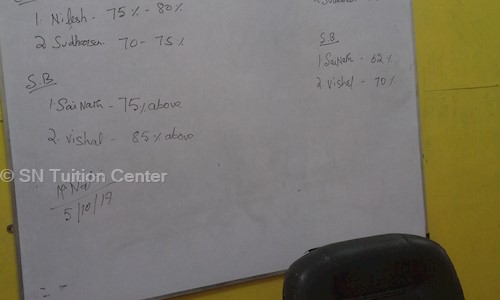 1. Nilesh - 75% - 80%
2. Sudharsan 70 - 75%
S.B
1. Sai Nath - 75% above
2. Vishal - 85% above
5/10/17
S.B
1. Sai Nath - 62%
2. Vishal - 70%
© SN Tuition Center